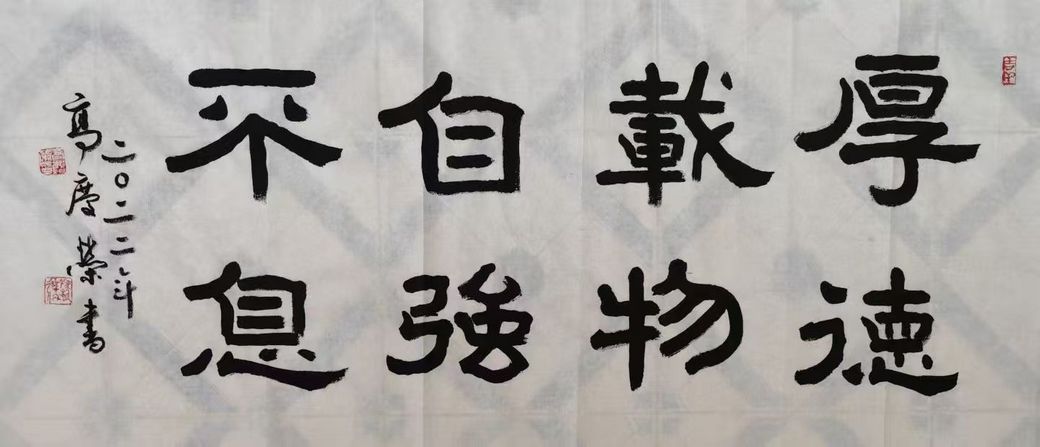 厚德
載物
自強
不息
二〇二二年
高慶榮書